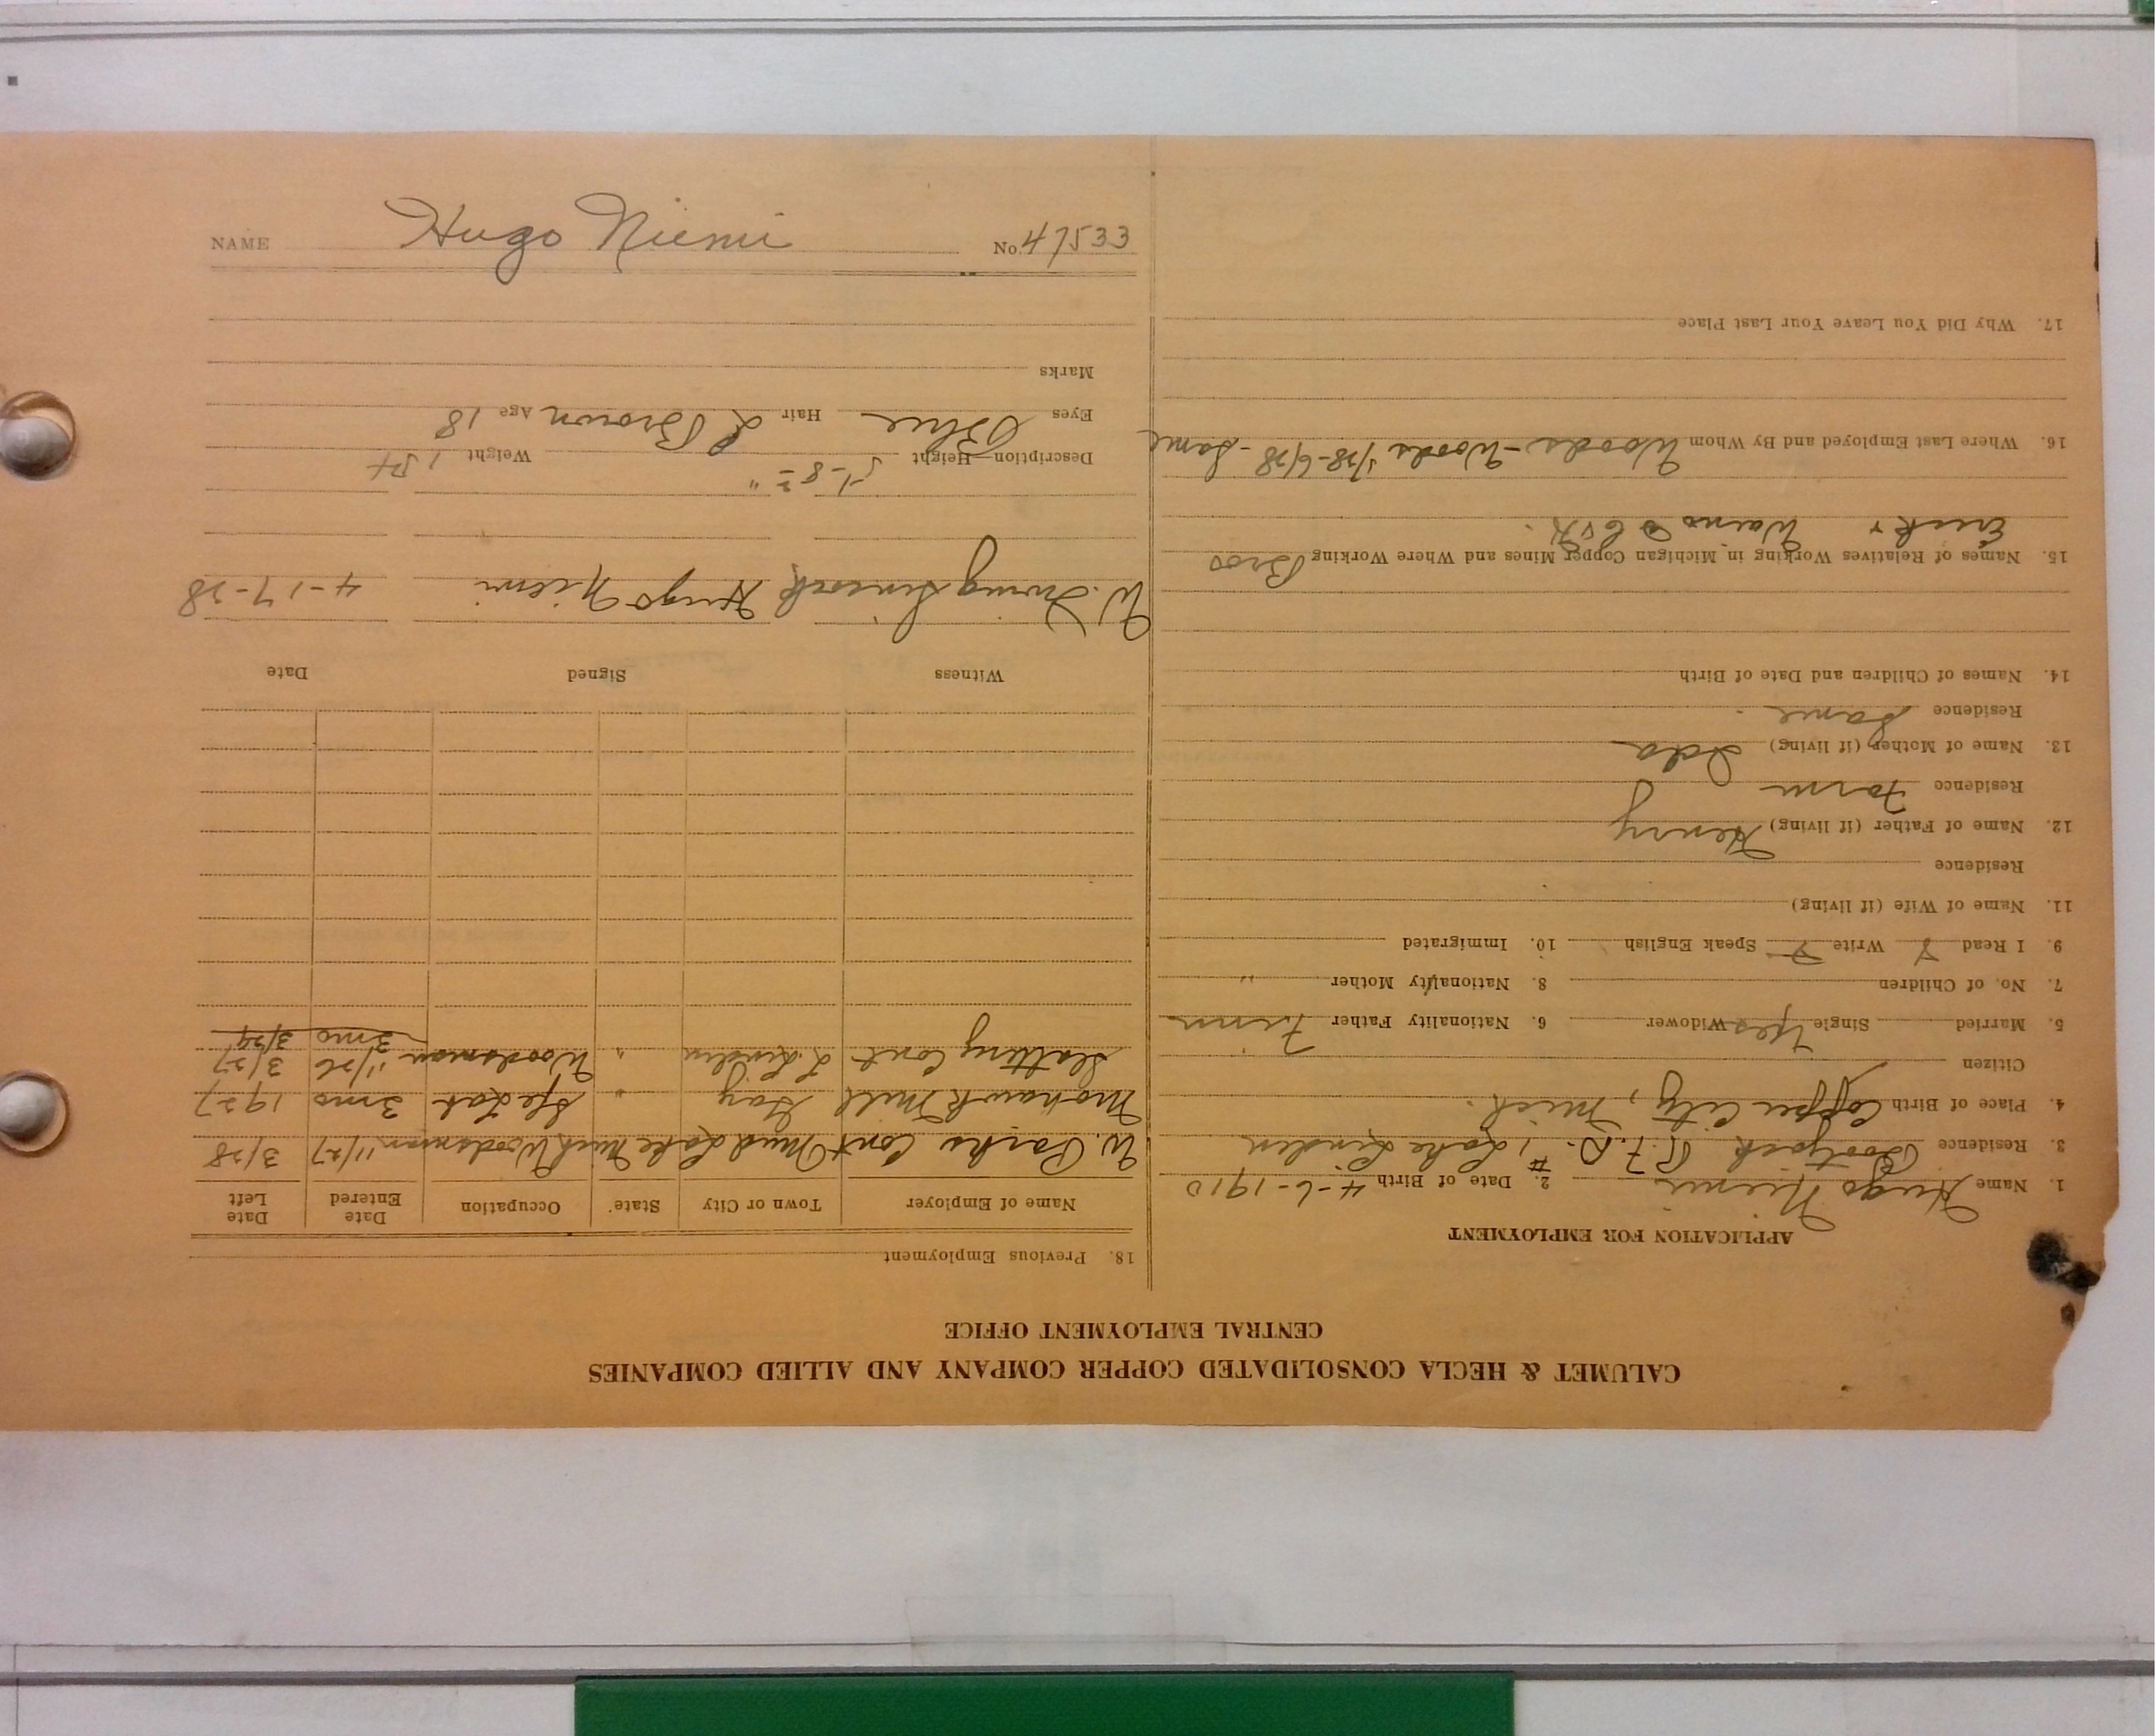 NAME Hugo Niemi No. 47533
CALUMET & HECLA CONSOLIDATED COPPER COMPANY AND ALLIED COMPANIES
CENTRAL EMPLOYMENT OFFICE
APPLICATION FOR EMPLOYMENT
1. Name Hugo Niemi 2. Date of Birth 4-6-1910
3. Residence Bootjack R.F.D. #1 Lake Linden
4. Place of Birth Copper City, Mich.
Citizen
5. Married Single Yes Widower 6. Nationality Father Finn
7. No. of Children 8. Nationality Mother "
9. I Read Y Write Y Speak English 10. Immigrated
11. Name of Wife (if living)
Residence
12. Name of Father (if living) Henry
Residence Farm
13. Name of Mother (if living) Ida
Residence Same
14. Names of Children and Date of Birth
15. Names of Relatives Working in Michigan Copper Mines and Where Working Bros
Erick & Waino C & H.
16. Where Last Employed and By Whom Woods - Woods 1/28-6/28 - Same
17. Why Did You Leave Your Last Place
18. Previous Employment
Name of Employer Town or City State Occupation Date Entered Date Left
W. Parks Cont Mud Lake Mich Woodsman 11/27 3/28
Mohawk Mill Gay " Sfe Lab 3 mo 1927
Slattery Cont L. Linden " Woodsman 11/26 3/27
3 mo
Witness Signed Date
W. Irving Hugo Niemi 4-17-28
Description—Height 5-8 " Weight 154
Eyes Blue Hair L Brown Age 18
Marks